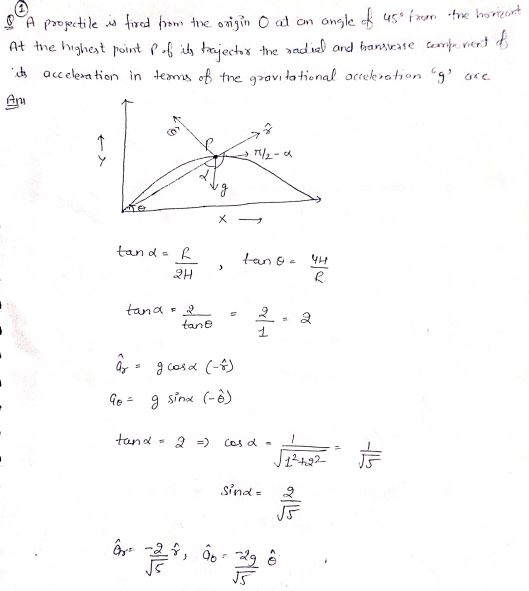 ①
Q A projectile is fired from the origin O at an angle of 45° from the horizont
At the highest point P of its trajector the radial and transverse component of
its acceleration in terms of the gravitational acceleration 'g' are
Ans
θ̂ P r̂
↑ → π/2 - α
Y α g
θ
X →
tan α = R/2H , tan θ = 4H/R
tan α = 2/tan θ = 2/1 = 2
âr = g cos α (-r̂)
aθ = g sin α (-θ̂)
tan α = 2 => cos α = 1/√(1²+2²) = 1/√5
sin α = 2/√5
âr = -2/√5 r̂, âθ = -2g/√5 θ̂